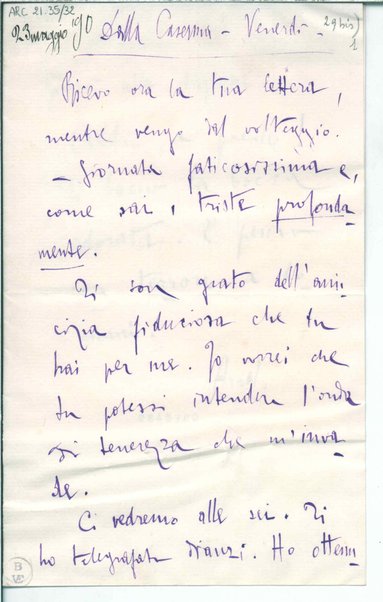 ARC 21.35/32
23 maggio 90
29 bis
1
Dalla Caserma - Venerdì -
Ricevo ora la tua lettera,
mentre vengo dal volteggio.
- Giornata faticosissima e,
come sai, triste profonda
mente.
Ti son grato dell'ami
cizia fiduciosa che tu
hai per me. Io vorrei che
tu potessi intendere l'onda
di tenerezza che m'inva
de.
Ci vedremo alle sei. Ti
ho telegrafato dianzi. Ho ottenu
B
VE